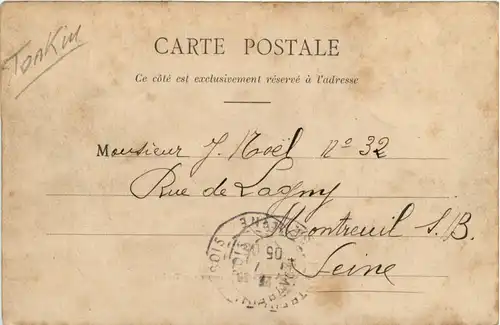 Tonkin
CARTE POSTALE
Ce côté est exclusivement réservé à l'adresse
Monsieur J. Noël No 32
Rue de Lagny
Montreuil S/B.
Seine
05